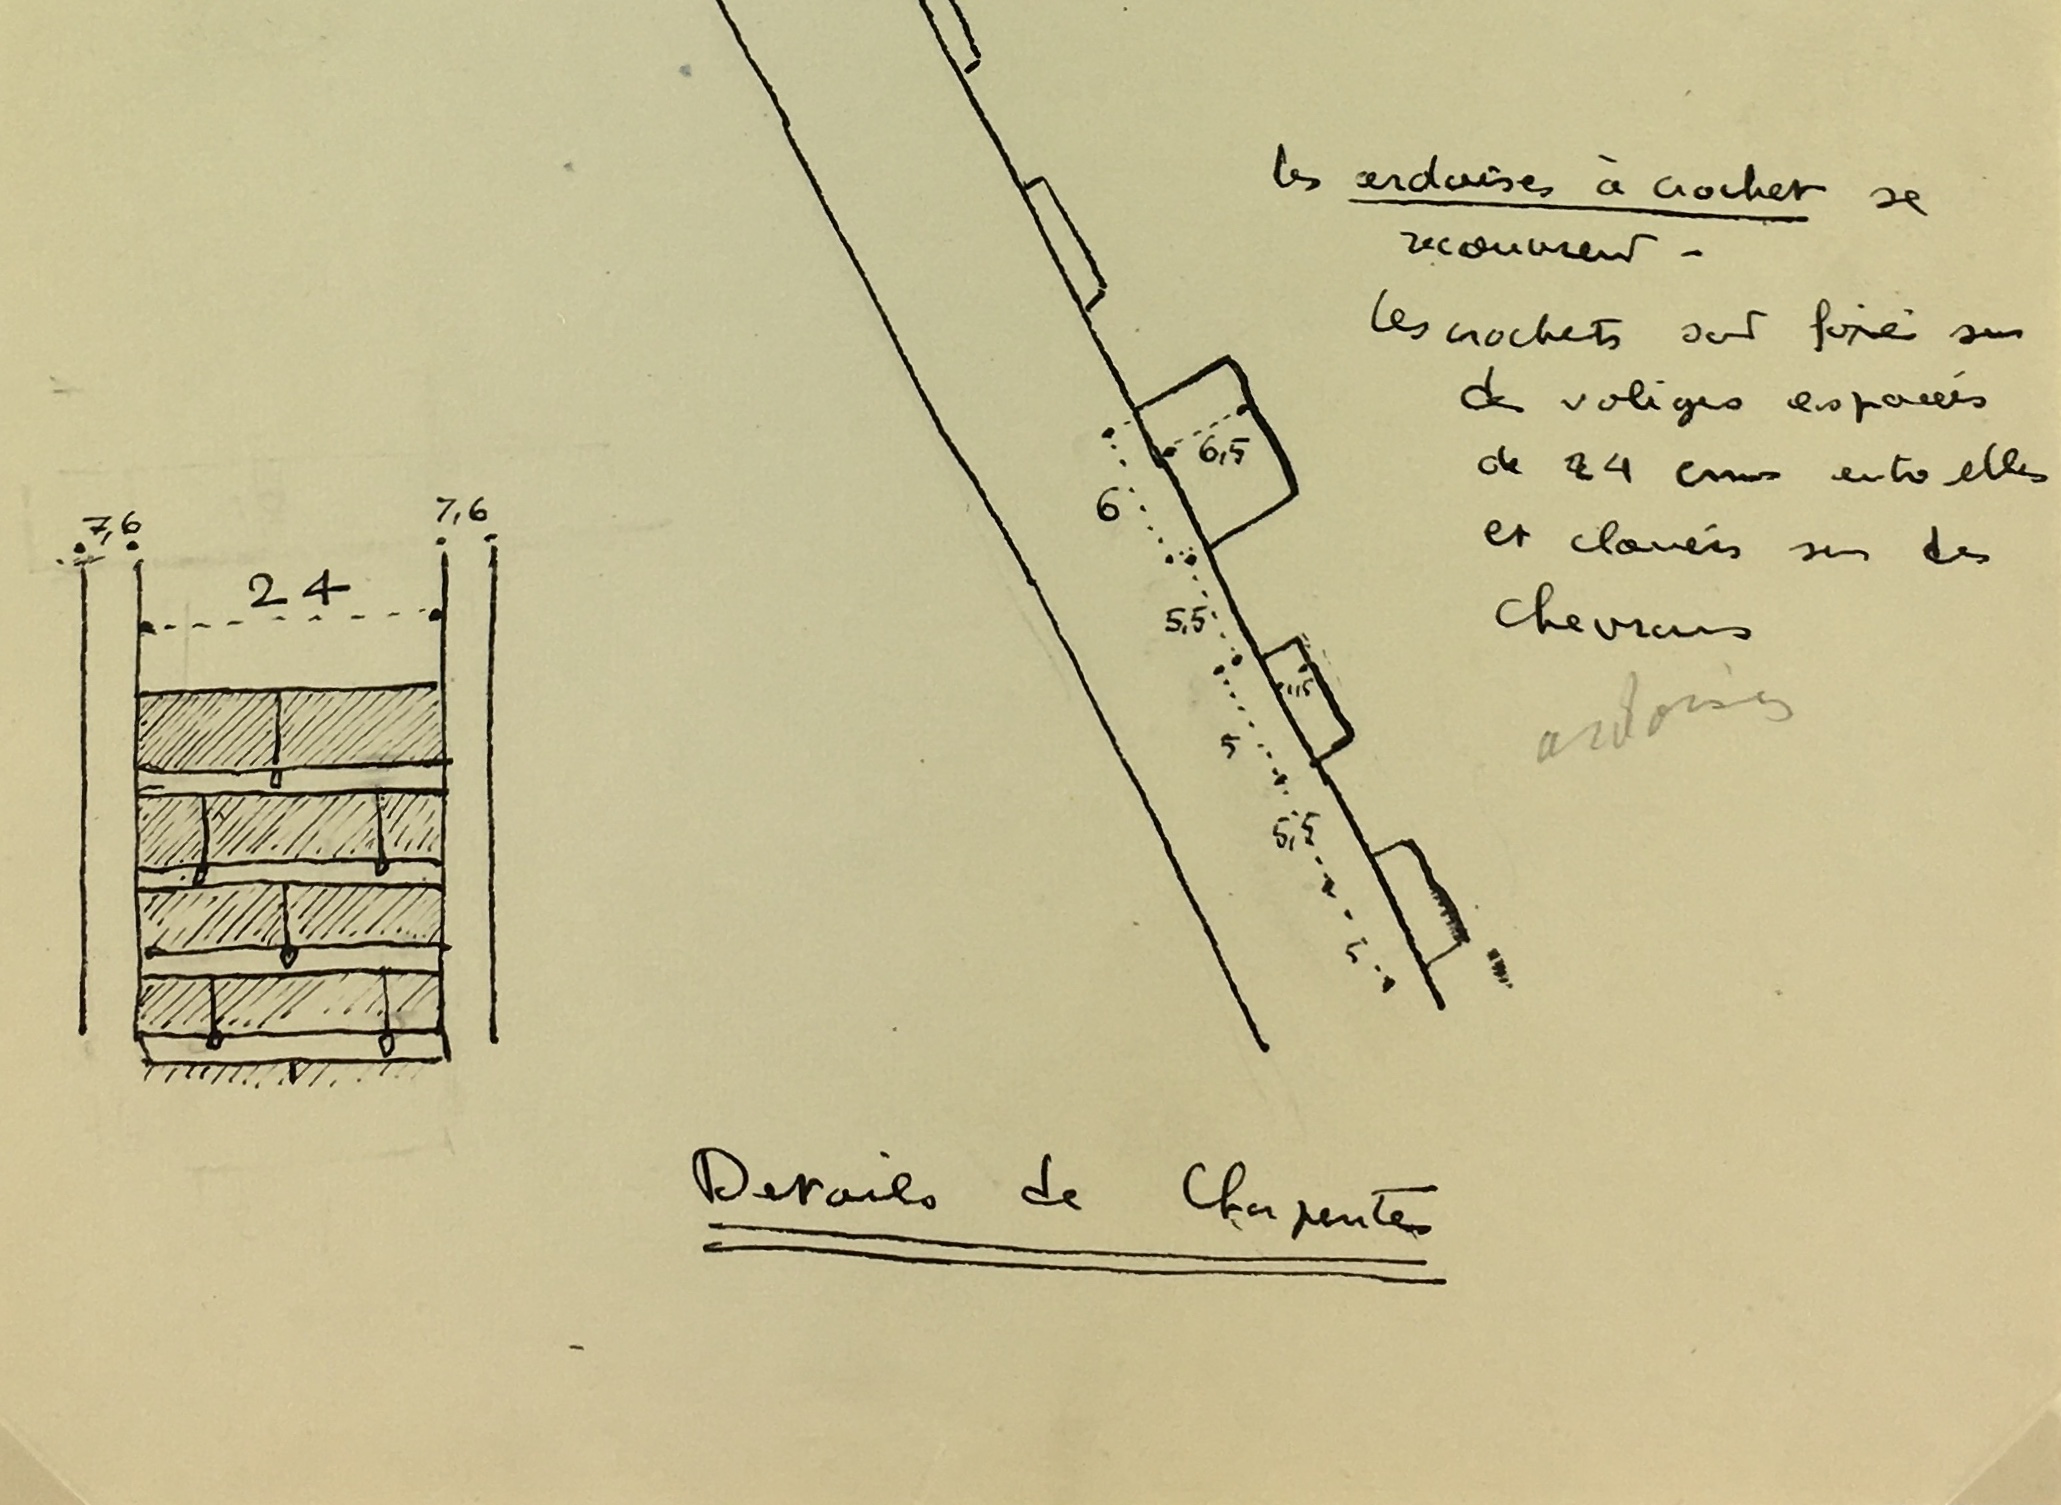 les ardoises à crochet se
recouvrent -
les crochets sont fixés sur
des voliges espacées
de 24 cms entre elles
et clouées sur des
chevrons
ardoises
7,6
7,6
24
6,5
6
5,5
5
5,5
5
Details de Charpentes